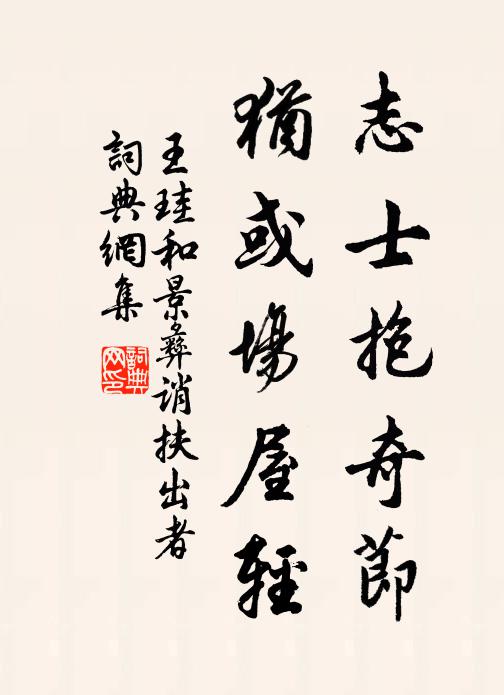 志士抱奇節
猶或場屋輕
王珪和景彝誚扶出者
詞典網集
詞典网印